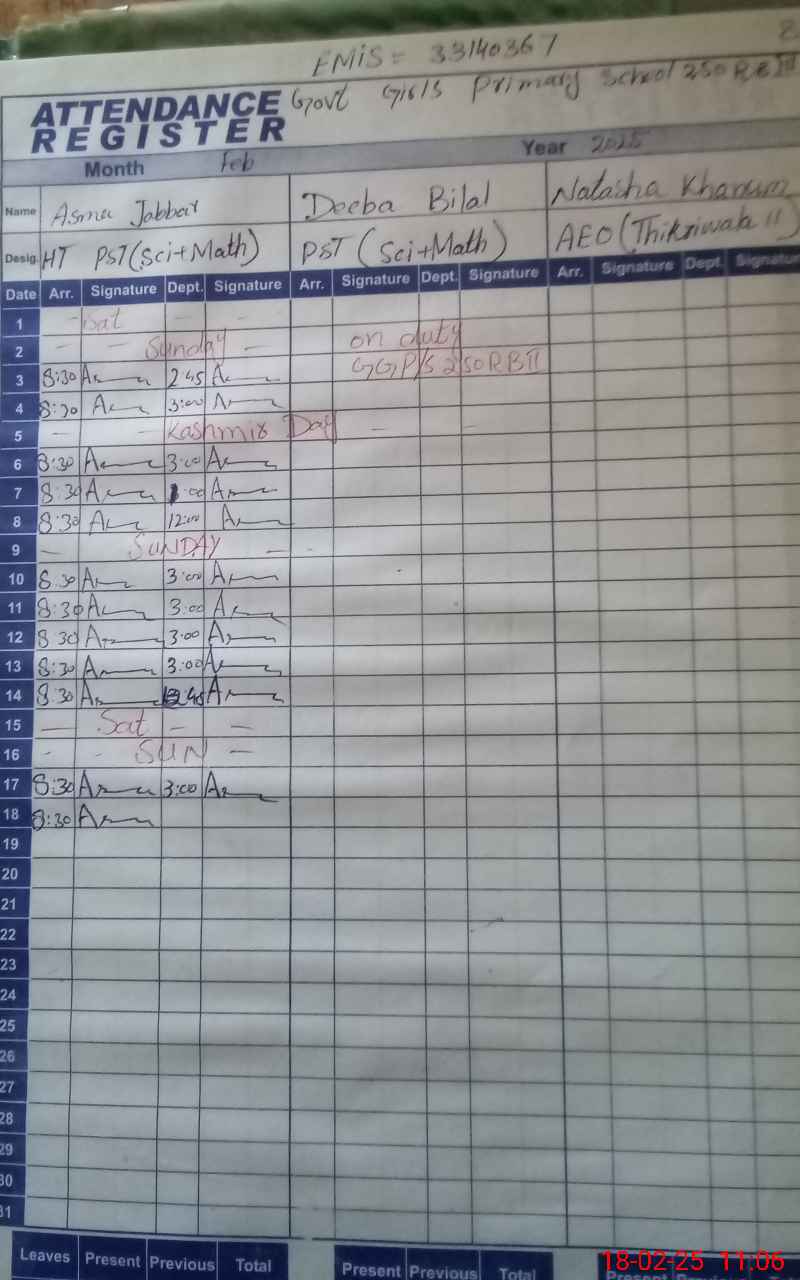 EMIS = 33140367
ATTENDANCE REGISTER Govt Girls Primary School 250 RB III
Month Feb Year 2025
Name Asma Jabbar Deeba Bilal Natasha Khanum
Desig. HT PST (Sci+Math) PST (Sci+Math) AEO (Thikriwala II)
Date Arr. Signature Dept. Signature Arr. Signature Dept. Signature Arr. Signature Dept. Signatur
1 - Sat - -
2 - - Sunday - on duty
3 8:30 2:45 GGP/S 250RBII
4 8:30 3:00
5 - - Kashmir Day - -
6 8:30 3:00
7 8:30 1:00
8 8:30 12:00
9 - SUNDAY - -
10 8:30 3:00
11 8:30 3:00
12 8:30 3:00
13 8:30 3:00
14 8:30 12:45
15 - Sat - -
16 - - SUN -
17 8:30 3:00
18 8:30
19
20
21
22
23
24
25
26
27
28
29
30
31
Leaves Present Previous Total Present Previous Total
18-02-25 11:06